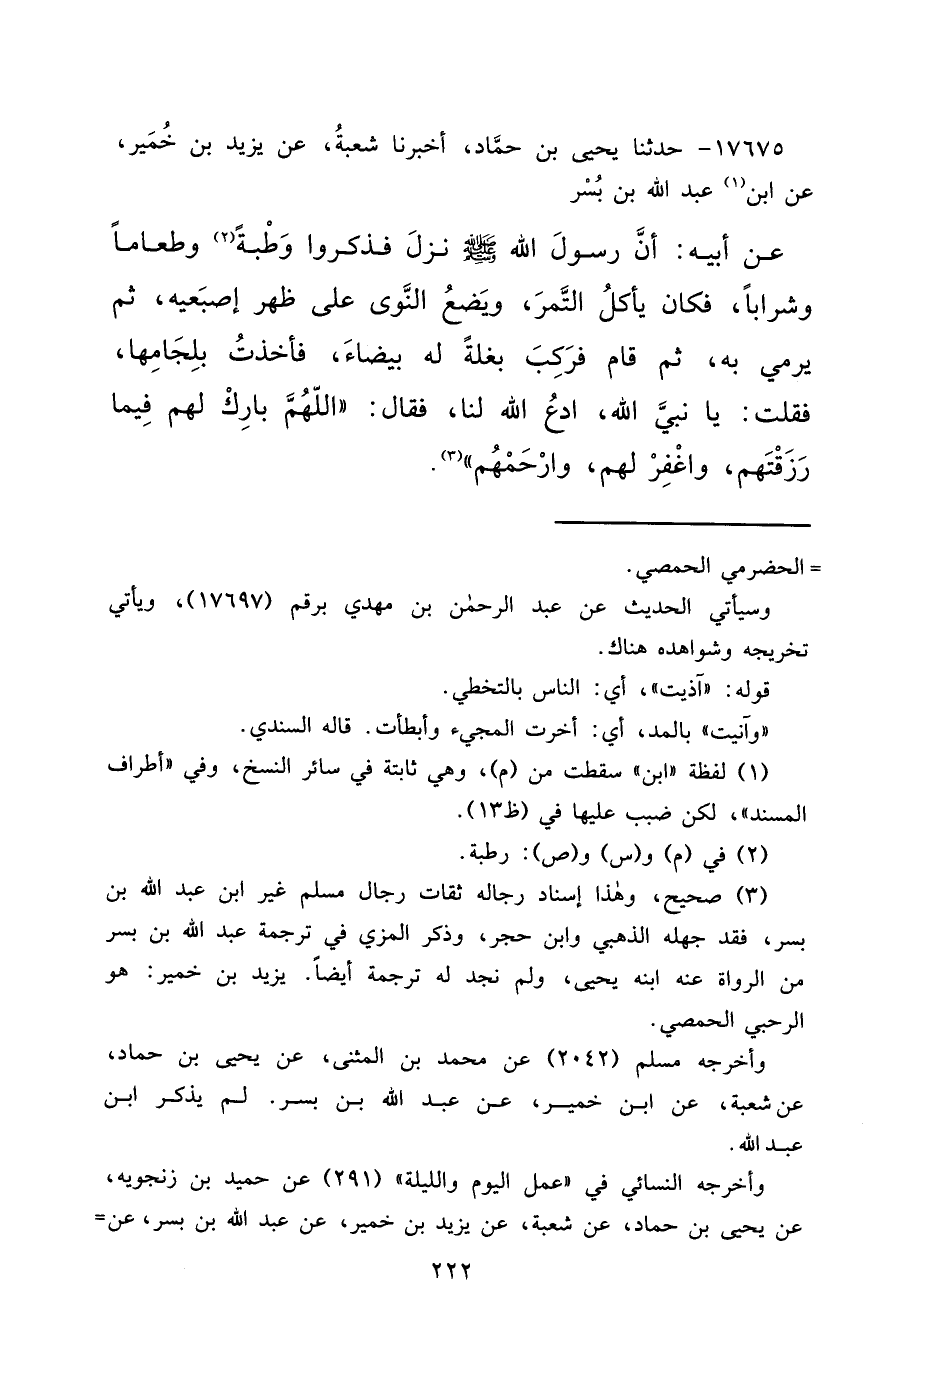 ١٧٦٧٥- حدثنا يحيى بن حمَّاد، أخبرنا شعبةُ، عن يزيد بن خُمَير،
عن ابن(١) عبد الله بن بُسْر
عن أبيه: أنَّ رسولَ الله ﷺ نزلَ فذكروا وَطْبةً(٢) وطعاماً
وشراباً، فكان يأكلُ التَّمرَ، ويَضعُ النَّوى على ظهر إصبَعيه، ثم
يرمي به، ثم قام فرَكِبَ بغلةً له بيضاءَ، فأخذتُ بلِجَامِها،
فقلت: يا نبيَّ الله، ادعُ الله لنا، فقال: «اللّهُمَّ بارِكْ لهم فِيما
رَزَقْتَهم، واغْفِرْ لهم، وارْحَمْهُم»(٣).
= الحضرمي الحمصي.
وسيأتي الحديث عن عبد الرحمٰن بن مهدي برقم (١٧٦٩٧)، ويأتي
تخريجه وشواهده هناك.
قوله: «آذيت»، أي: الناس بالتخطي.
«وآنيت» بالمد، أي: أخرت المجيء وأبطأت. قاله السندي.
(١) لفظة «ابن» سقطت من (م)، وهي ثابتة في سائر النسخ، وفي «أطراف
المسند»، لكن ضبب عليها في (ظ١٣).
(٢) في (م) و(س) و(ص): رطبة.
(٣) صحيح، وهٰذا إسناد رجاله ثقات رجال مسلم غير ابن عبد الله بن
بسر، فقد جهله الذهبي وابن حجر، وذكر المزي في ترجمة عبد الله بن بسر
من الرواة عنه ابنه يحيى، ولم نجد له ترجمة أيضاً. يزيد بن خمير: هو
الرحبي الحمصي.
وأخرجه مسلم (٢٠٤٢) عن محمد بن المثنى، عن يحيى بن حماد،
عن شعبة، عن ابن خمير، عن عبد الله بن بسر. لم يذكر ابن
عبد الله.
وأخرجه النسائي في «عمل اليوم والليلة» (٢٩١) عن حميد بن زنجويه،
عن يحيى بن حماد، عن شعبة، عن يزيد بن خمير، عن عبد الله بن بسر، عن=
٢٢٢